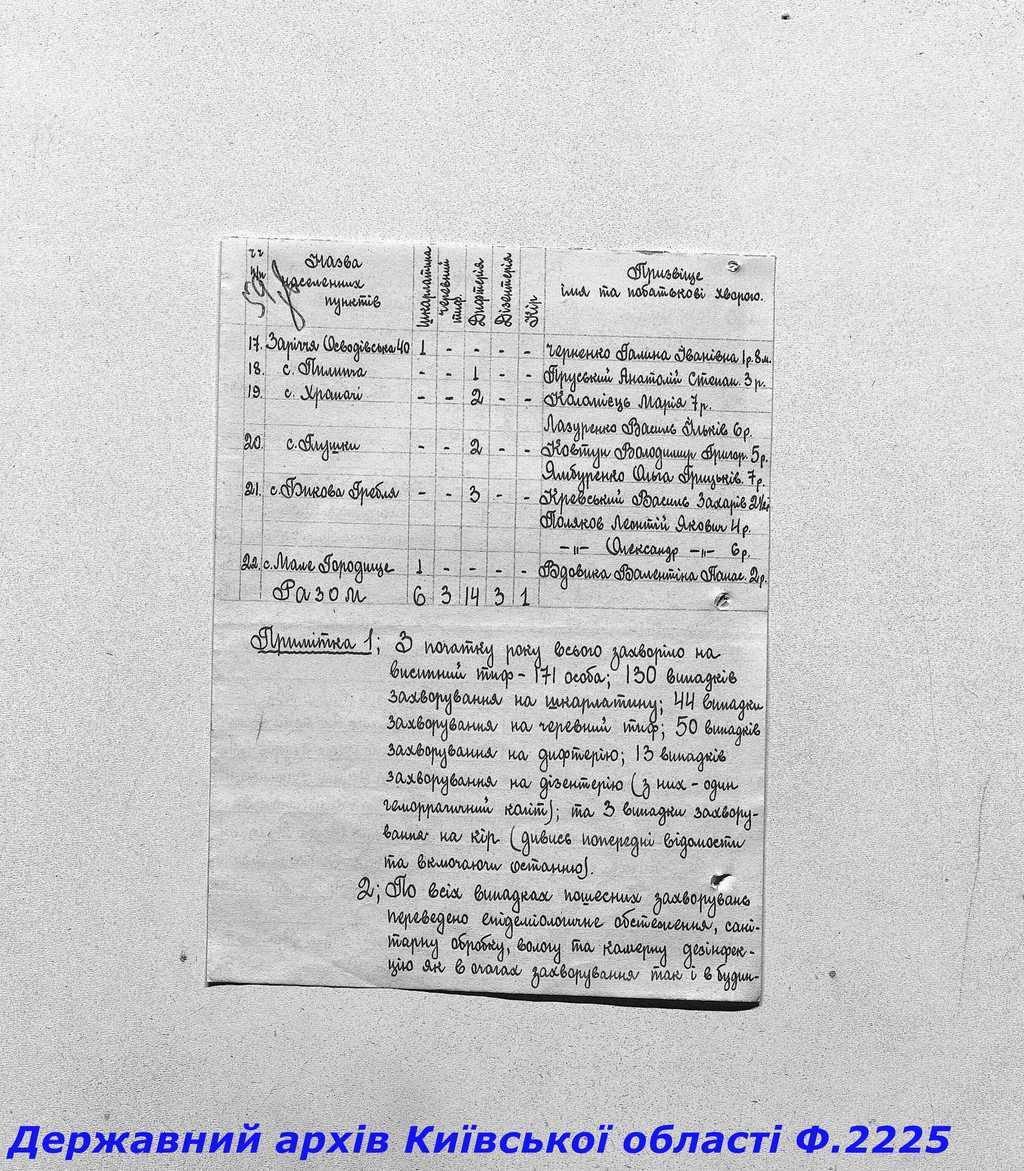 чч пп Назва населенних пунктів Шкарлатина Черевний тиф. Дифтерія Дізентерія Кір Призвіще імя та побатькові хворого.
59
17. Заріччя Осводівська 40 1 - - - - Черненко Галина Іванівна 1р. 8м.
18. с. Пилипча - - 1 - - Пруський Анатолій Степан. 3 р.
19. с. Храпачі - - 2 - - Коломієць Марія 7р.
Лазуренко Василь Ільків 6р.
20. с. Глушки - - 2 - - Ковтун Володимир Григор. 5р.
Ямбуренко Ольга Грицьків. 7р.
21. с. Бикова Гребля - - 3 - - Кревський Василь Захарів
Поляков Леонтій Якович 4р.
-"- Олександр -"- 6р.
22. с. Мале Городище 1 - - - - Вдовика Валентіна Панас. 2р.
Разом 6 3 14 3 1
Примітка 1; З початку року всього захворіло на
висипний тиф - 171 особа; 130 випадків
захворування на шкарлатину; 44 випадки
захворування на черевний тиф; 50 випадків
захворування на дифтерію; 13 випадків
захворування на дізентерію (з них - один
геморрагичний коліт); та 3 випадки захвору-
вання на кір (дивись попередні відомости
та включаючи останню).
2; По всіх випадках пошесних захворувань
переведено епідеміологичне обстеження, сані-
тарну обробку, вологу та камерну дезінфек-
цію як в очагах захворування так і в будин-
Державний архів Київської області Ф.2225